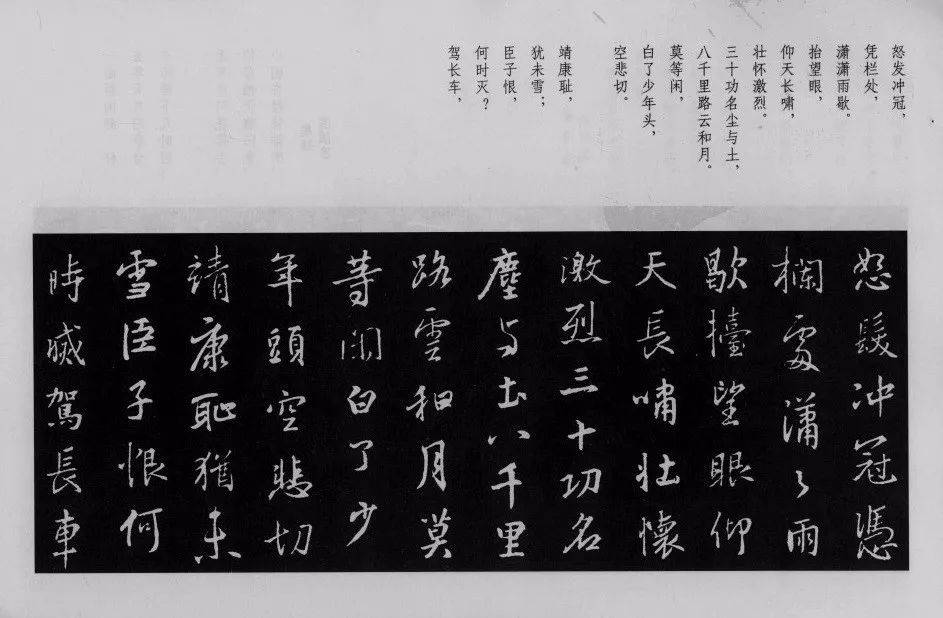 怒发冲冠，
凭栏处，
潇潇雨歇。
抬望眼，
仰天长啸，
壮怀激烈。
三十功名尘与土，
八千里路云和月。
莫等闲，
白了少年头，
空悲切。
靖康耻，
犹未雪；
臣子恨，
何时灭？
驾长车，
怒髮冲冠憑
欄處潇〻雨
歇擡望眼仰
天長嘯壮懷
激烈三十功名
塵与土八千里
路雲和月莫
等闲白了少
年頭空悲切
靖康恥猶未
雪臣子恨何
時滅駕長車